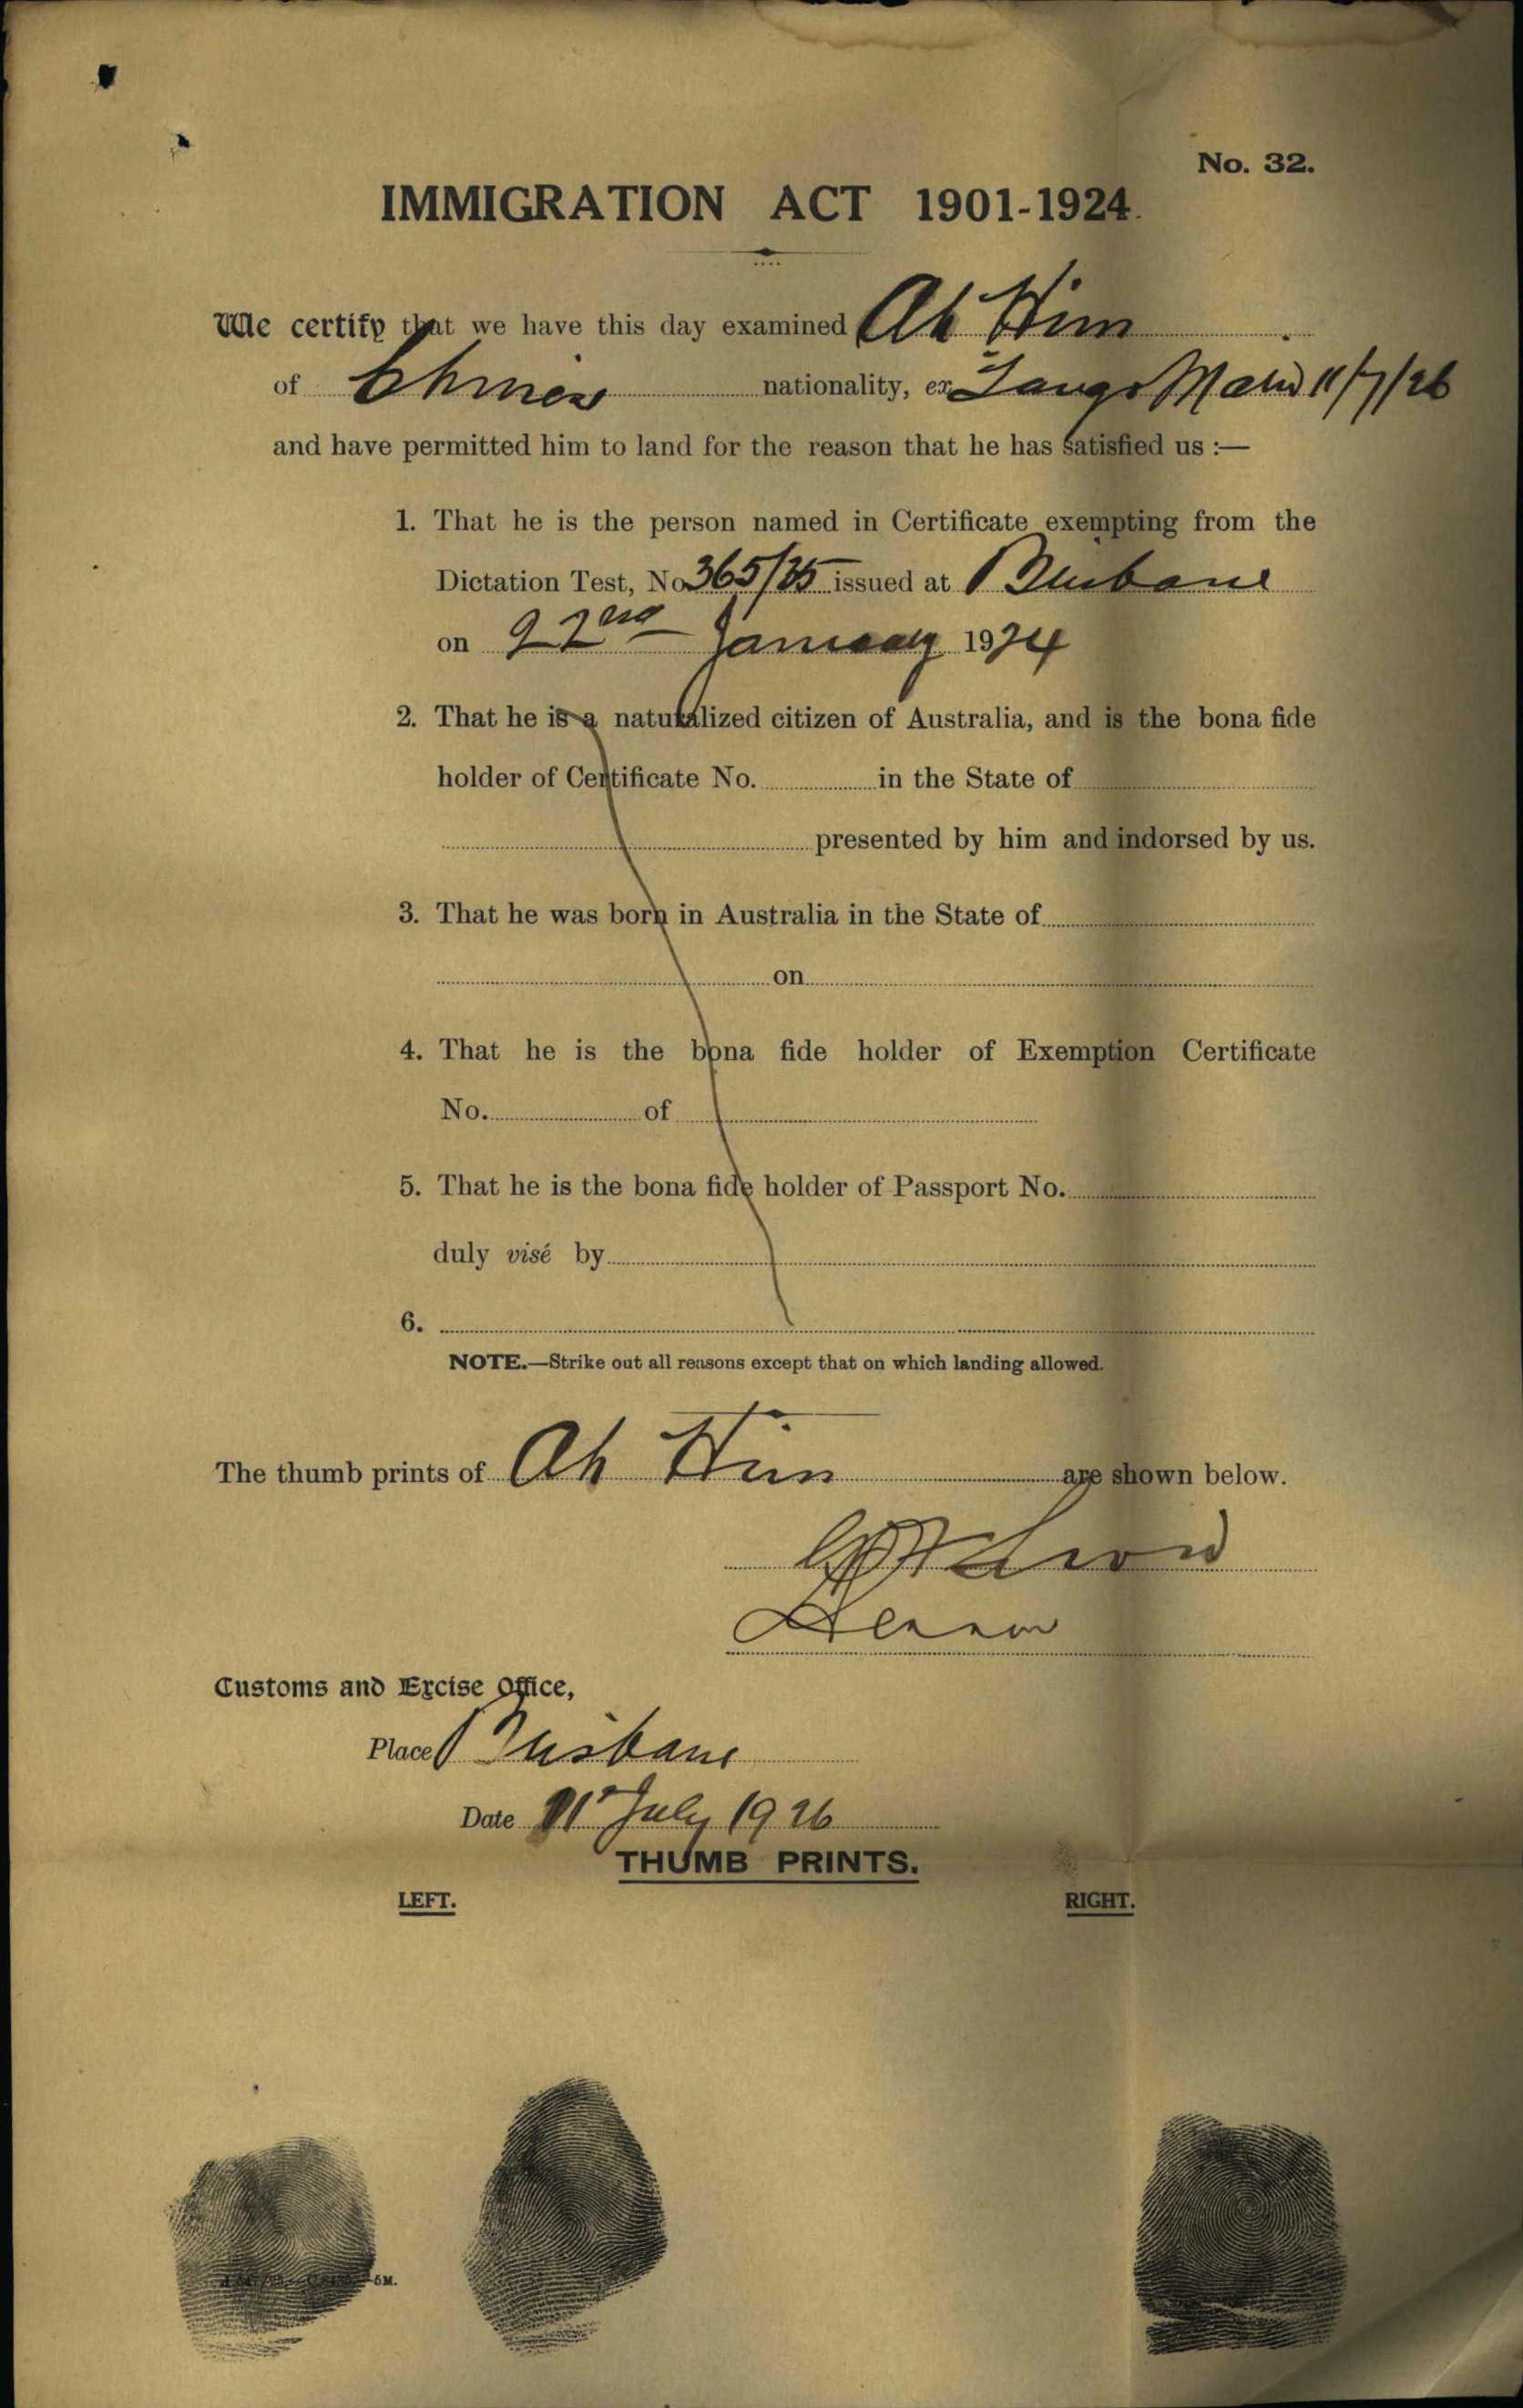 No. 32.
IMMIGRATION ACT 1901-1924.
We certify that we have this day examined Ah Him
of Chinese nationality, ex Tango Maru 11/7/26
and have permitted him to land for the reason that he has satisfied us :—
1. That he is the person named in Certificate exempting from the
Dictation Test, No 365/35 issued at Brisbane
on 22nd January 1924
2. That he is a naturalized citizen of Australia, and is the bona fide
holder of Certificate No. in the State of
presented by him and indorsed by us.
3. That he was born in Australia in the State of
on
4. That he is the bona fide holder of Exemption Certificate
No. of
5. That he is the bona fide holder of Passport No.
duly visé by
6.
NOTE.—Strike out all reasons except that on which landing allowed.
The thumb prints of Ah Him are shown below.
Customs and Excise Office,
Place Brisbane
Date 11 July 1926
THUMB PRINTS.
LEFT. RIGHT.
5M.